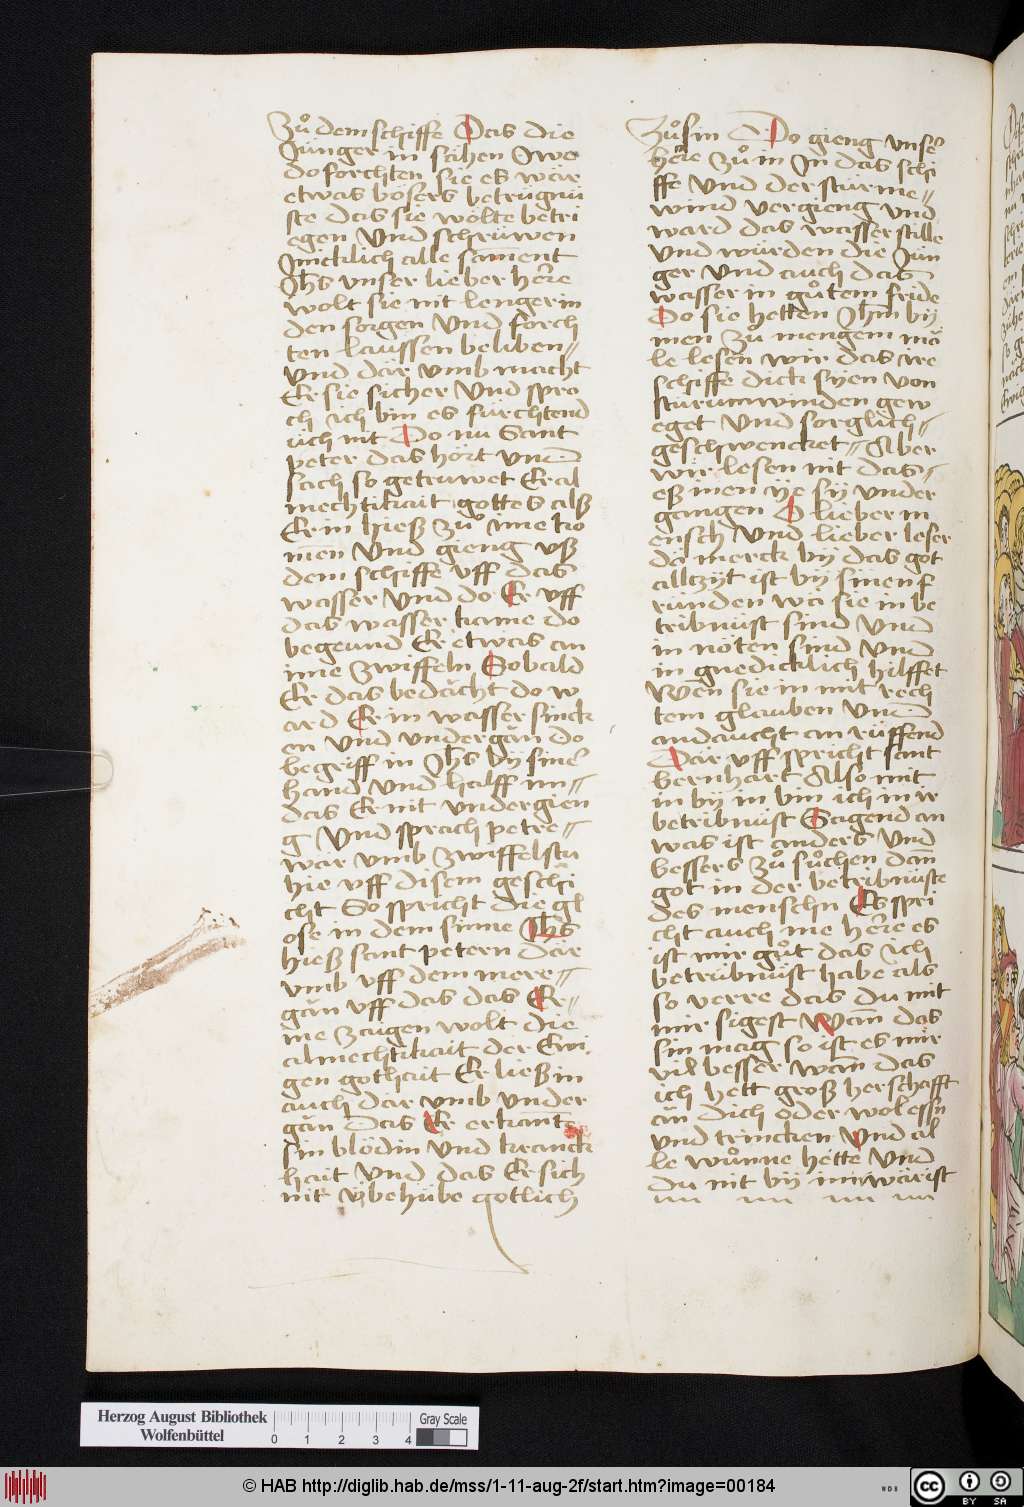 zuͦ dem schiffe Das die
Jünger in sähen Jwe
do forchten sie es wär
etwas bösers betrügnü
ste das sie wölte betri
egen Vnd schrüwen
Jmeklich alle sament
Jhs vnser lieber herre
wolt sie nit lenger in
den sorgen Vnd forch
ten laussen beliben〃
Vnd där vmb macht
Er sie sicher Vnd spra
ch ich bin es fürchtend
üch nit Do nu Sant
peter das hört vnd
sach so getruwet Er al
mechtikait gottes alß
Er in hieß zuͦ ime ko
men Vnd gieng vß
dem schiffe vff das
wasser Vnd do Er vff
das wasser kame do
begeund Er etwas an
ime zwiffeln Sobald
Er das bedächt do w
ard Er in wasser sinck
en Vnd vndergän do
begriff in Jhs bÿ siner
hand Vnd halff im〃
das Er nit vndergien
g Vnd sprach petre〃
war vmb zwiffelstu
hie vff disem geschi
cht So spricht die gl
ose in dem sinne Jhs
hieß sant petern där
vmb vff dem mere〃
gän vff das das Er〃
me zaigen wolt die
almechtikait der Ewi
gen gothait Er ließ in
auch där vmb vnder
gän das Er erkante
sin blödin Vnd kranck
hait Vnd das Er sich
nit vbehübe gotlich
zuͦ sin Do gieng vnser
herre zuͦ in In das schi
ffe Vnd der stürme〃
wind vergieng vnd
ward das wasser stille
Vnd würden die Jün
ger Vnd auch das
wasser in guͦtem fride
Do sie hetten Jhm bÿ
inen zuͦ mengem mä
le lesen wir das ire
schiffe dick sÿen von
stürumwinden gew
eget Vnd sorglich〃
geschwencket〃 Aber
wir lesen nit das〃
eß inen ÿe sÿ vnder
gangen O lieber m
ensch Vnd lieber leser
dä merck bÿ das got
allczÿt ist bÿ sinen f
ründen wä sie in be
tribnüst sind Vnd
in nöten sind Vnd
in gnedicklich hilffet
Wen sie in mit rech
tem glauben Vnd
andaucht an rüffend
Där vff spricht sant
bernhart Also mit
in bÿ in bin ich in ir
betribnüst Sagend an
was ist anders Vnd
bessers zuͦ suͦchen dan̄
got in der betribnüste
des menschn Es spri
cht auch me herre es
ist mir guͦt das ich
betrübnüst habe als
so verre das du mit
mir sigest Wan̄ das
sin mag so ist es mir
vil besser wan̄ das
ich hett groß herschafft
än dich oder wol essn
vnd trincken Vnd al
le wuͦnne hette Vnd
du nit bÿ mir wärist
Herzog August Bibliothek
Wolfenbüttel
0 1 2 3 4
Gray Scale
© HAB http://diglib.hab.de/mss/1-11-aug-2f/start.htm?image=00184
WDB
CC BY SA